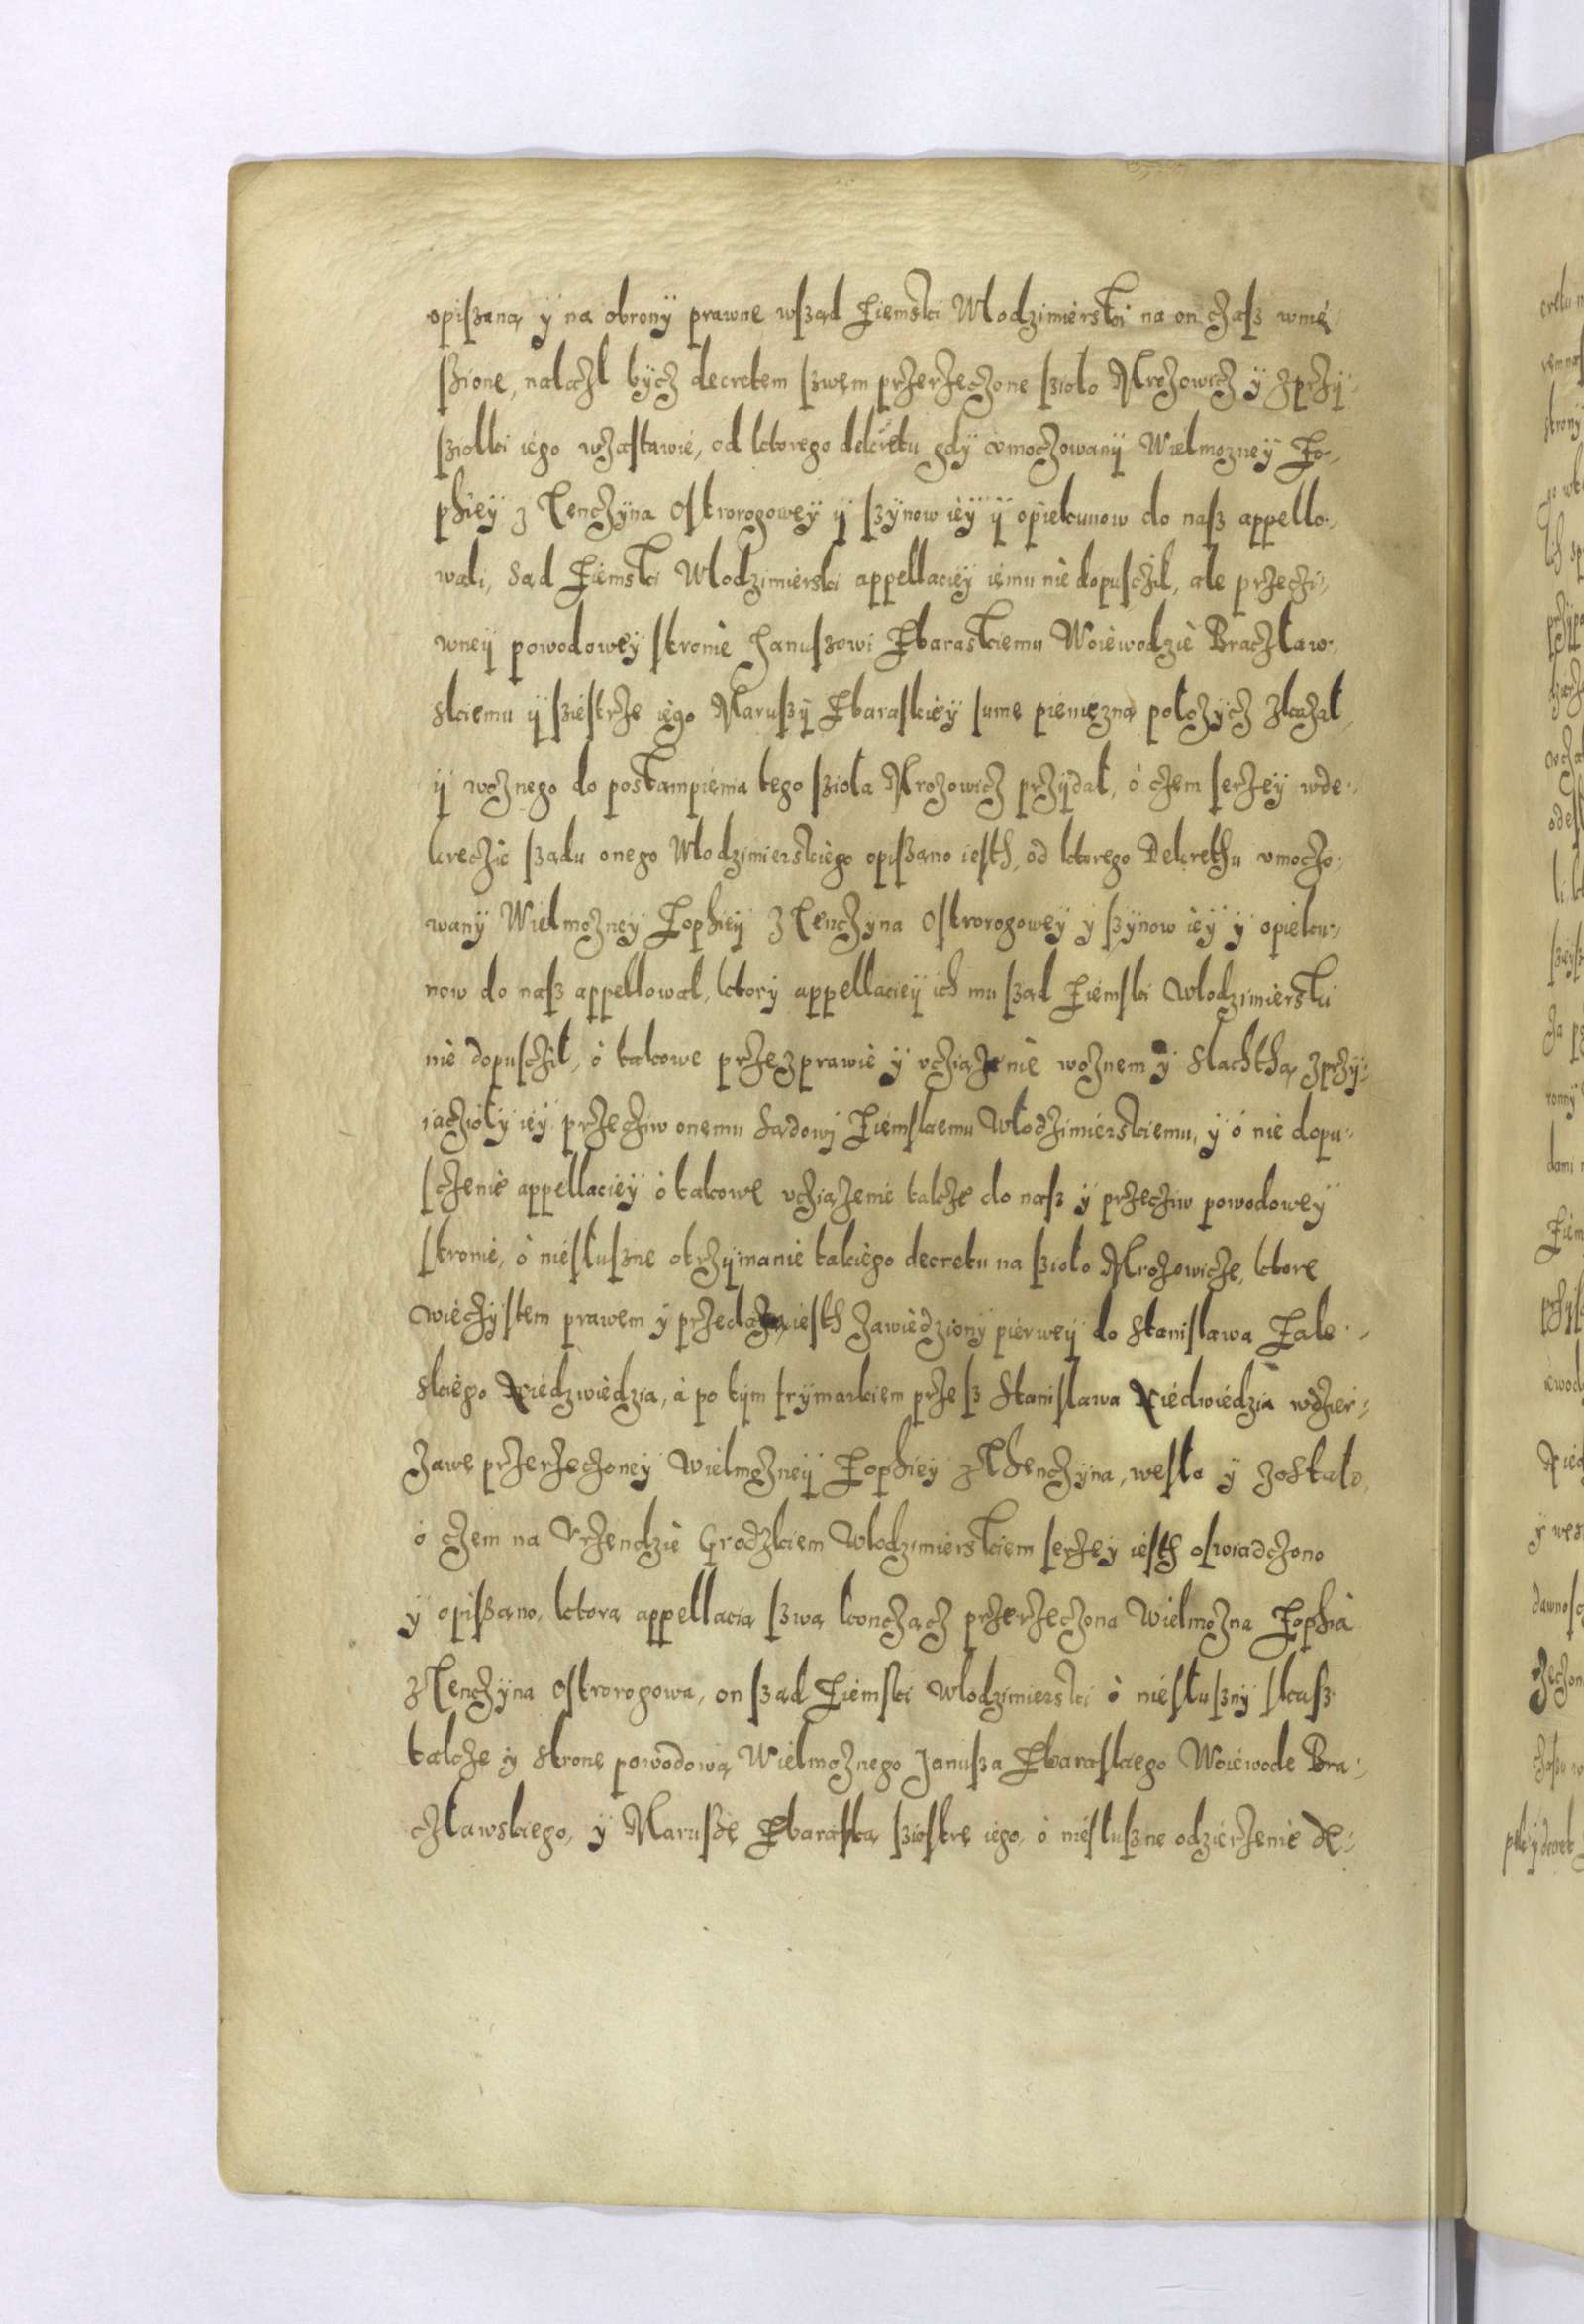 opiszaną y na obrony prawne wsząd Ziemski Wlodzimierski na on czasz wnie
szione, nalazl bycz decretem szwem przerzeczone szioło Mrozowicz y zprzy
sziolki iego wzastawie, od ktorego dekretu gdy vmoczowany Wielmozney Zo
phiey z Tenczyna Ostrorogowey y szynow iey y opiekunow do nasz appello
wali, Sąd Ziemski Wlodzimierski appellaciey iemu nie dopusczil, ale przeczi
wney powodowey stronie Januszowi Zbaraskiemu Woiewodzie Braczław
skiemu y sziestrze iego Maruszy Zbaraskiey sume pieniezną położycz zkazał
y woznego do postampienia tego szioła Mrozowicz przydał, o czem serzey wde
kreczie sządu onego Wlodzimierskiego opiszano iesth, od ktorego Dekrethu vmoczo
wany Wielmozney Zophiey z Tenczyna Ostrorogowey y szynow iey y opieku
now do nasz appellowal, ktory appellaciey ich mu sząd Ziemski Wlodzimierski
nie dopusczil, o takowe przezprawie y vcziązenie woznem y Slachthą zprzy
iaczioły iey przecziw onemu Sądowy Ziemskiemu Włodzimierskiemu, y o nie dopu
sczenie appellaciey o takowe vcziązenie takze do nasz y przecziw powodowey
stronie, o niesłuszne otrzymanie takiego decretu na szioło Mrozowicze, ktore
wieczystem prawem y przedazą iesth zawiedziony pierwey do Stanislawa Zale
skiego Niedzwiedzia, a po tym frymarkiem przesz Stanislawa Niedwiedzia wdzier
zawe przerzeczoney Wielmozney Zophiey z Thenczyna, wesła y zostało
o czem na Vrzendzie Grodzkiem Wlodzimierskiem serzey iesth oswiadczono
y opiszano, ktorą appellacią szwą konczącz przerzeczona Wielmozna Zophia
z Tenczyna Ostrorogowa, on sząd Ziemski Wlodzimierski o niesłuszny skasz
takze y strone powodową Wielmoznego Janusza Zbaraskiego Woiewode Bra
czławskiego, y Maruszę Zbaraską sziostrę iego, o niesłuszne odzierzenie de